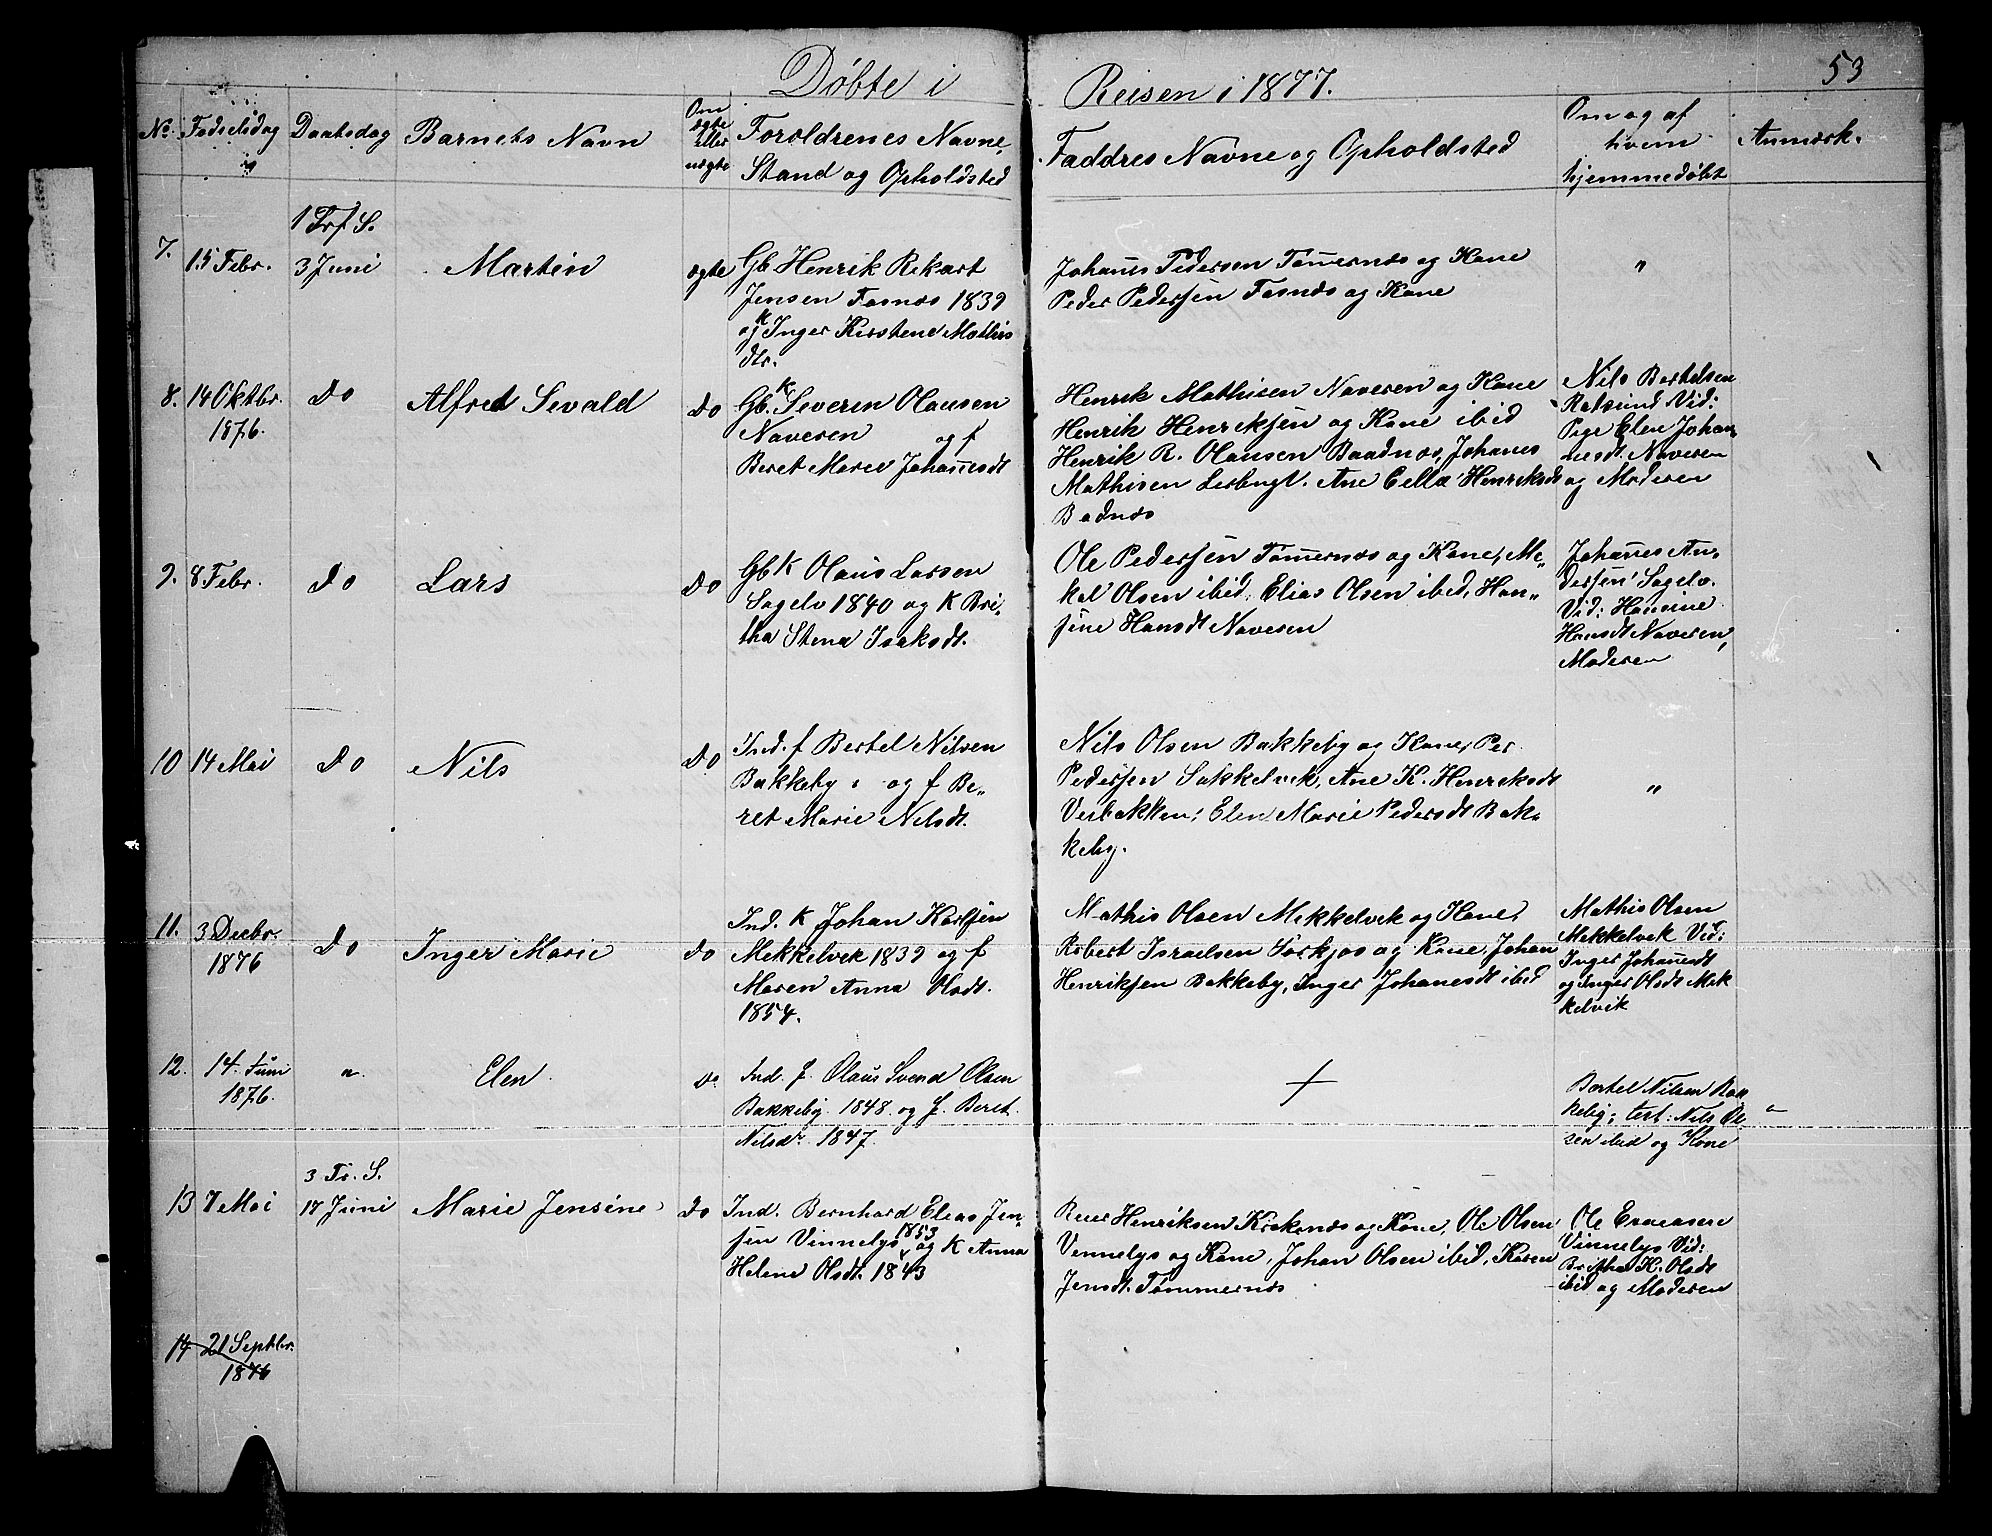 Døbte i Reisen i 1877.
53
No. Fødselsdag Daabsdag Barnets Navn Om ægte eller uægte Forældrenes Navne, Stand og Opholdsted Faddres Navne og Opholdsted Om og af hvem hjemmedøbt Anmærk.
7. 15 Febr.
1 Trf. S.
3 Juni
Martin
ægte
Gb. Henrik Rikart
Jensen Fosnæs 1839
og K Inger Kirstene Mathis
dtr.
Johannes Pedersen Tømernæs og Kone
Peder Pedersen Fosnæs og Kone
"
8. 14 Oktbr.
1876.
Do
Alfred Sevald
Do
Gb. K Severin Olausen
Naveren og f
Beret Marie Johannesdt
Henrik Mathisen Naveren og Kone
Henrik Henriksen og Kone ibid
Henrik R. Olausen Baadnæs, Johanes
Mathisen Lerbugt. Ane Cella Henriksdt
Badnæs
Nils Bertelsen
Rotsund Vid:
Pige Elen Johan-
nesdt. Naveren
og Moderen
9. 8 Febr.
Do
Lars
Do
Gb K Olaus Larsen
Sagelv 1840 og K Bri-
tha Stina Isaksdt.
Ole Pedersen Tømernæs og Kone, Mi-
kal Olsen ibid, Elias Olsen ibid, Han-
sine Hansdt Naveren
Johannes An-
dersen Sagelv.
Vid: Hansine
Hansdt Naveren,
Moderen
10 14 Mai
Do
Nils
Do
Ind. f Bertel Nilsen
Bakkeby og f Be-
ret Marie Nilsdt.
Nils Olsen Bakkeby og Kone, Per
Pedersen Sakkelvik, Ane K. Henriksdt
Verbakken, Elen Marie Pedersdt Bak-
keby.
"
11. 3 Decbr.
1876
Do
Inger Marie
Do
Ind. K Johan Karlsen
Mekkelvik 1839 og f
Maren Anna Olsdt.
1854.
Mathis Olsen Mekkelvik og Kone,
Robert Israelsen Sørkjos og Kone, Johan
Henriksen Bakkeby, Inger Johanesdt ibid
Mathis Olsen
Mekkelvik Vid:
Inger Johannesdt
og Inger Olsdt Mek
kelvik
12. 14. Juni
1876.
"
Elen
Do
Ind. f. Olaus Svend Olsen
Bakkeby 1848 og f. Beret
Nilsdr. 1847.
+
Bertel Nilsen Bak
keby; test: Nils Ol-
sen ibid og Kone
"
13 7 Mai
3 Tr. S.
17 Juni
Marie Jensine
Do
Ind. Bernhard Elias Jen-
sen Vinnelys 1853 og K Anna
Helene Olsdt. 1843
Reier Henriksen Krakenæs og Kone, Ole Olsen
Vinnelys og Kone, Johan Olsen ibid, Karen
Jensdt. Tømmernæs
Ole
Vinnelys Vid:
Britha K. Olsdt
ibid og Moderen
14 21 Septbr.
1876